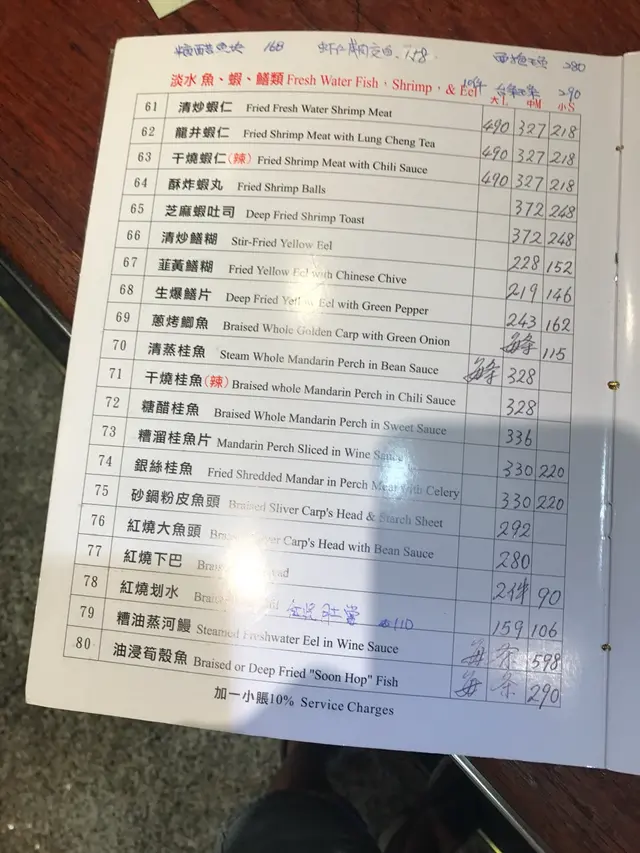 糖醋魚塊 168 蝦仁腐皮 158 280
淡水魚、蝦、鱔類 Fresh Water Fish, Shrimp, & Eel 290
大L 中M 小S
61 清炒蝦仁 Fried Fresh Water Shrimp Meat 490 327 218
62 龍井蝦仁 Fried Shrimp Meat with Lung Cheng Tea 490 327 218
63 干燒蝦仁(辣) Fried Shrimp Meat with Chili Sauce 490 327 218
64 酥炸蝦丸 Fried Shrimp Balls 372 248
65 芝麻蝦吐司 Deep Fried Shrimp Toast 372 248
66 清炒鱔糊 Stir-Fried Yellow Eel 228 152
67 韮黃鱔糊 Fried Yellow Eel with Chinese Chive 219 146
68 生爆鱔片 Deep Fried Yellow Eel with Green Pepper 243 162
69 蔥烤鯽魚 Braised Whole Golden Carp with Green Onion 每条 115
70 清蒸桂魚 Steam Whole Mandarin Perch in Bean Sauce 每条 328
71 干燒桂魚(辣) Braised whole Mandarin Perch in Chili Sauce 328
72 糖醋桂魚 Braised Whole Mandarin Perch in Sweet Sauce 336
73 糟溜桂魚片 Mandarin Perch Sliced in Wine Sauce 330 220
74 銀絲桂魚 Fried Shredded Mandar in Perch Meat with Celery 330 220
75 砂鍋粉皮魚頭 Braised Sliver Carp's Head & Starch Sheet 292
76 紅燒大魚頭 Carp's Head with Bean Sauce 280
77 紅燒下巴 2件 90
78 紅燒划水 110 159 106
79 糟油蒸河鰻 Steamed Freshwater Eel in Wine Sauce 每条 598
80 油浸筍殼魚 Braised or Deep Fried "Soon Hop" Fish 每条 290
加一小賬10% Service Charges